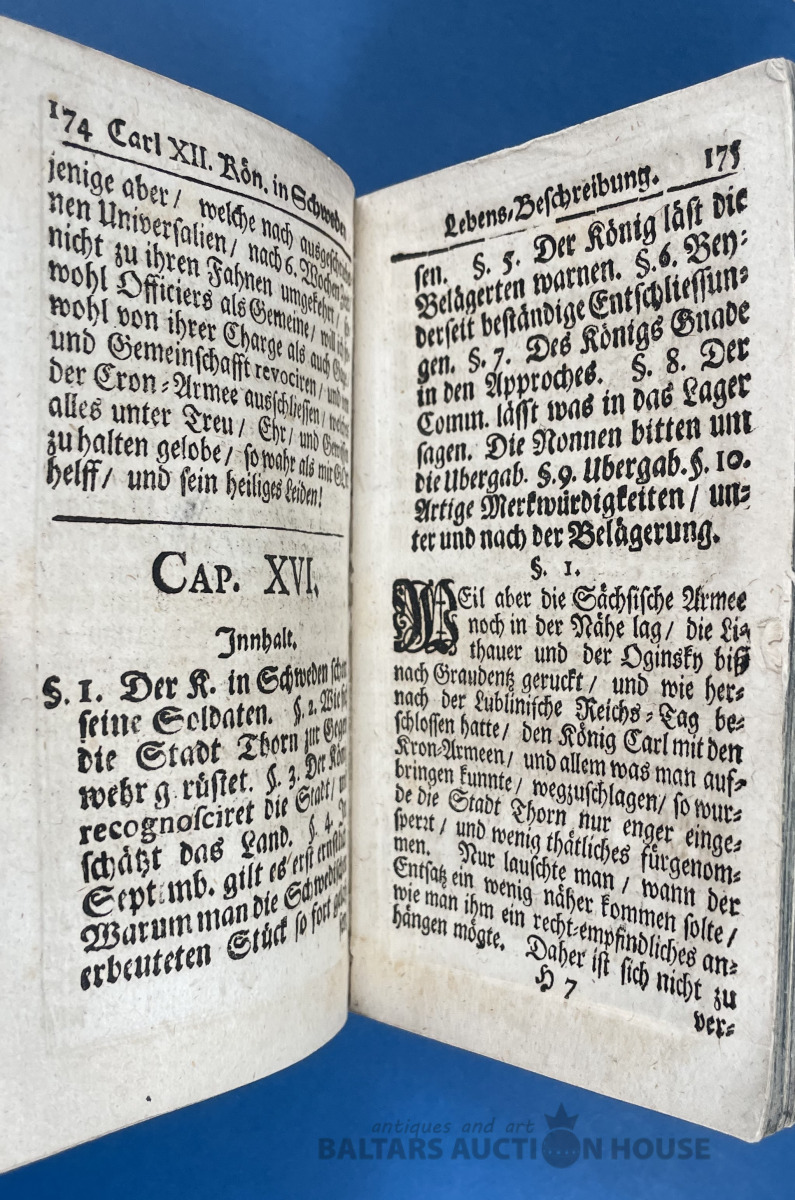 174 Carl XII. Kön. in Schweden
jenige aber / welche nach
nen Universalien / nach 6. Wochen
nicht zu ihren Fahnen umgekehrt /
wohl Officiers als Gemeine / will
wohl von ihrer Charge als auch
und Gemeinschafft revociren / und
der Cron-Armee ausschliessen /
alles unter Treu / Ehr / und Gewissen
zu halten gelobe / so wahr als mir
helff / und sein heiliges Leiden!
CAP. XVI.
Innhalt.
§. 1. Der K. in Schweden
seine Soldaten. §. 2. Wie
die Stadt Thorn zur Gegen
wehr g rüstet. §. 3. Der Kön
recognosciret die Stadt /
schätzt das Land. §. 4.
Septemb. gilt es erst
Warum man die Schwedische
erbeuteten Stück so fort
Lebens-Beschreibung. 175
sen. §. 5. Der König läst die
Belägerten warnen. §. 6. Bey-
derseit beständige Entschliessun-
gen. §. 7. Des Königs Gnade
in den Approches. §. 8. Der
Comm. lässt was in das Lager
sagen. Die Nonnen bitten um
die Ubergab. §. 9. Ubergab. §. 10.
Artige Merkwürdigkeiten / un-
ter und nach der Belägerung.
§. 1.
WEil aber die Sächsische Armee
noch in der Nähe lag / die Li-
thauer und der Oginsky biß
nach Graudentz geruckt / und wie her-
nach der Lublinische Reichs-Tag be-
schlossen hatte / den König Carl mit den
Kron-Armeen / und allem was man auf-
bringen kunnte / wegzuschlagen / so wur-
de die Stadt Thorn nur enger einge-
sperrt / und wenig thätliches fürgenom-
men. Nur lauschte man / wann der
Entsatz ein wenig näher kommen solte /
wie man ihm ein recht-empfindliches an-
hängen mögte. Daher ist sich nicht zu
H 7
ver-
antiques and art
BALTARS AUCTION HOUSE